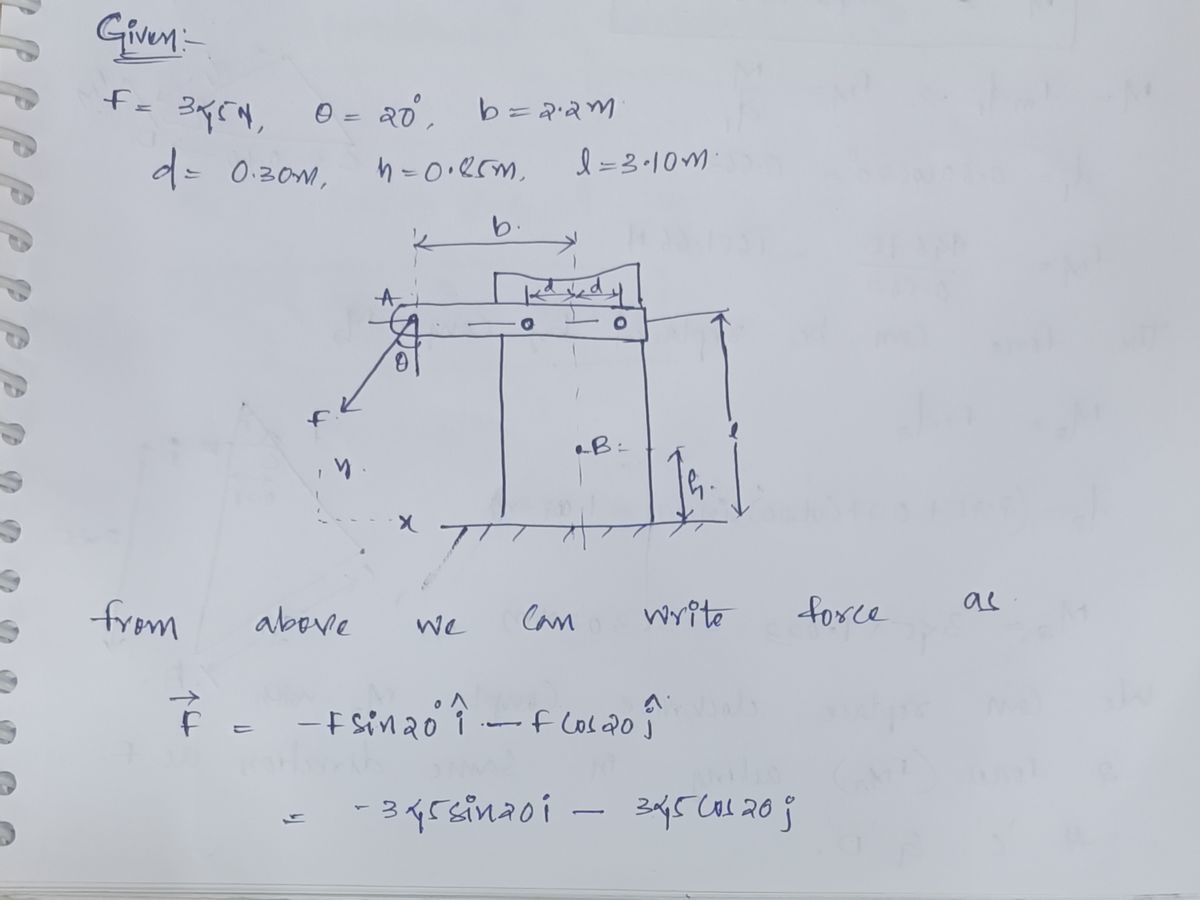 Given:-
F = 345N, θ = 20°, b = 2.2m
d = 0.30m, h = 0.85m, l = 3.10m
b.
d d
A
θ
F
l
B
h.
y
x
from above we can write force as
F⃗ = -Fsin20° î - F cos20 ĵ
= -345sin20i - 345cos20j